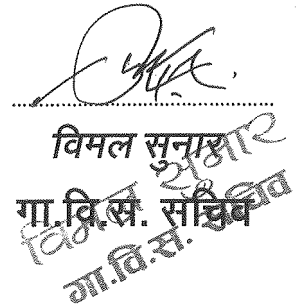 विमल सुनार
गा.वि.स. सचिव
विमल सुनार
गा.वि.स. सचिव